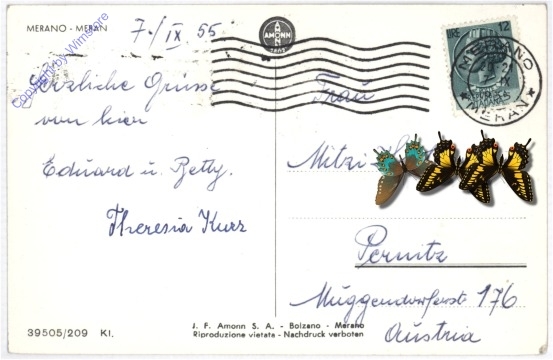 MERANO - MERAN
7./IX 55.
Herzliche Grüsse
von hier
Eduard u. Betty.
Theresia Kurz
AMONN
LIRE 12
MERANO
* MERAN *
Frau
Mitzi
Pernitz
Muggendorferst 176
Austria
39505/209 Kt.
J. F. Amonn S. A. - Bolzano - Merano
Riproduzione vietata - Nachdruck verboten
Copyright by Wimstore